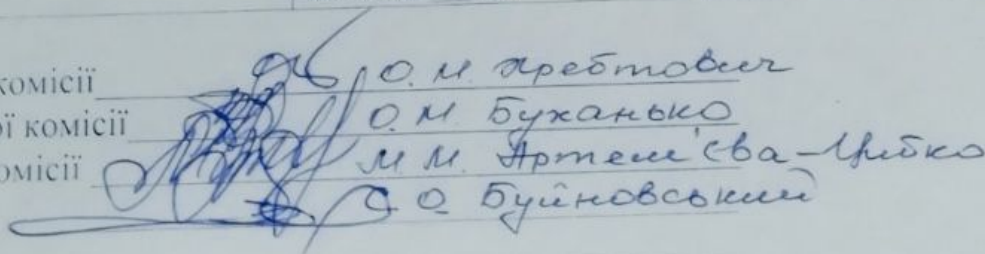 комісії О.М. Хребтович
ої комісії О.М. Буханько
омісії М.М. Артем'єва-
С О Буйновський